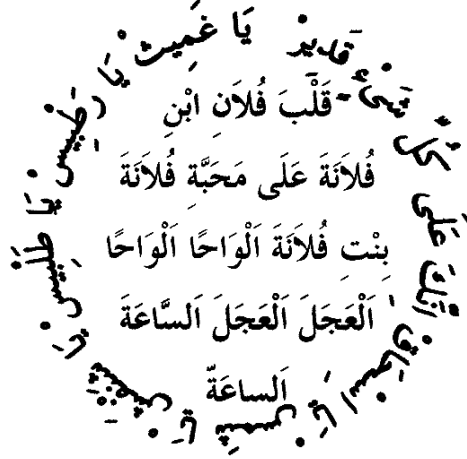 قَلْبَ فُلَانِ ابْنِ
فُلَانَةَ عَلَى مَحَبَّةِ فُلَانَةَ
بِنْتِ فُلَانَةَ اَلْوَاحًا اَلْوَاحًا
اَلْعَجَلَ اَلْعَجَلَ اَلسَّاعَةَ
اَلساعَةّ
يَا غَمِيث يَا رَطْبِيسْ يَا طَلْبِيسْ يَا يَا شَمْسْ يَا اسحاق اَنَّكَ عَلَى كُلِّ شَىْءٍ قَدِيرْ